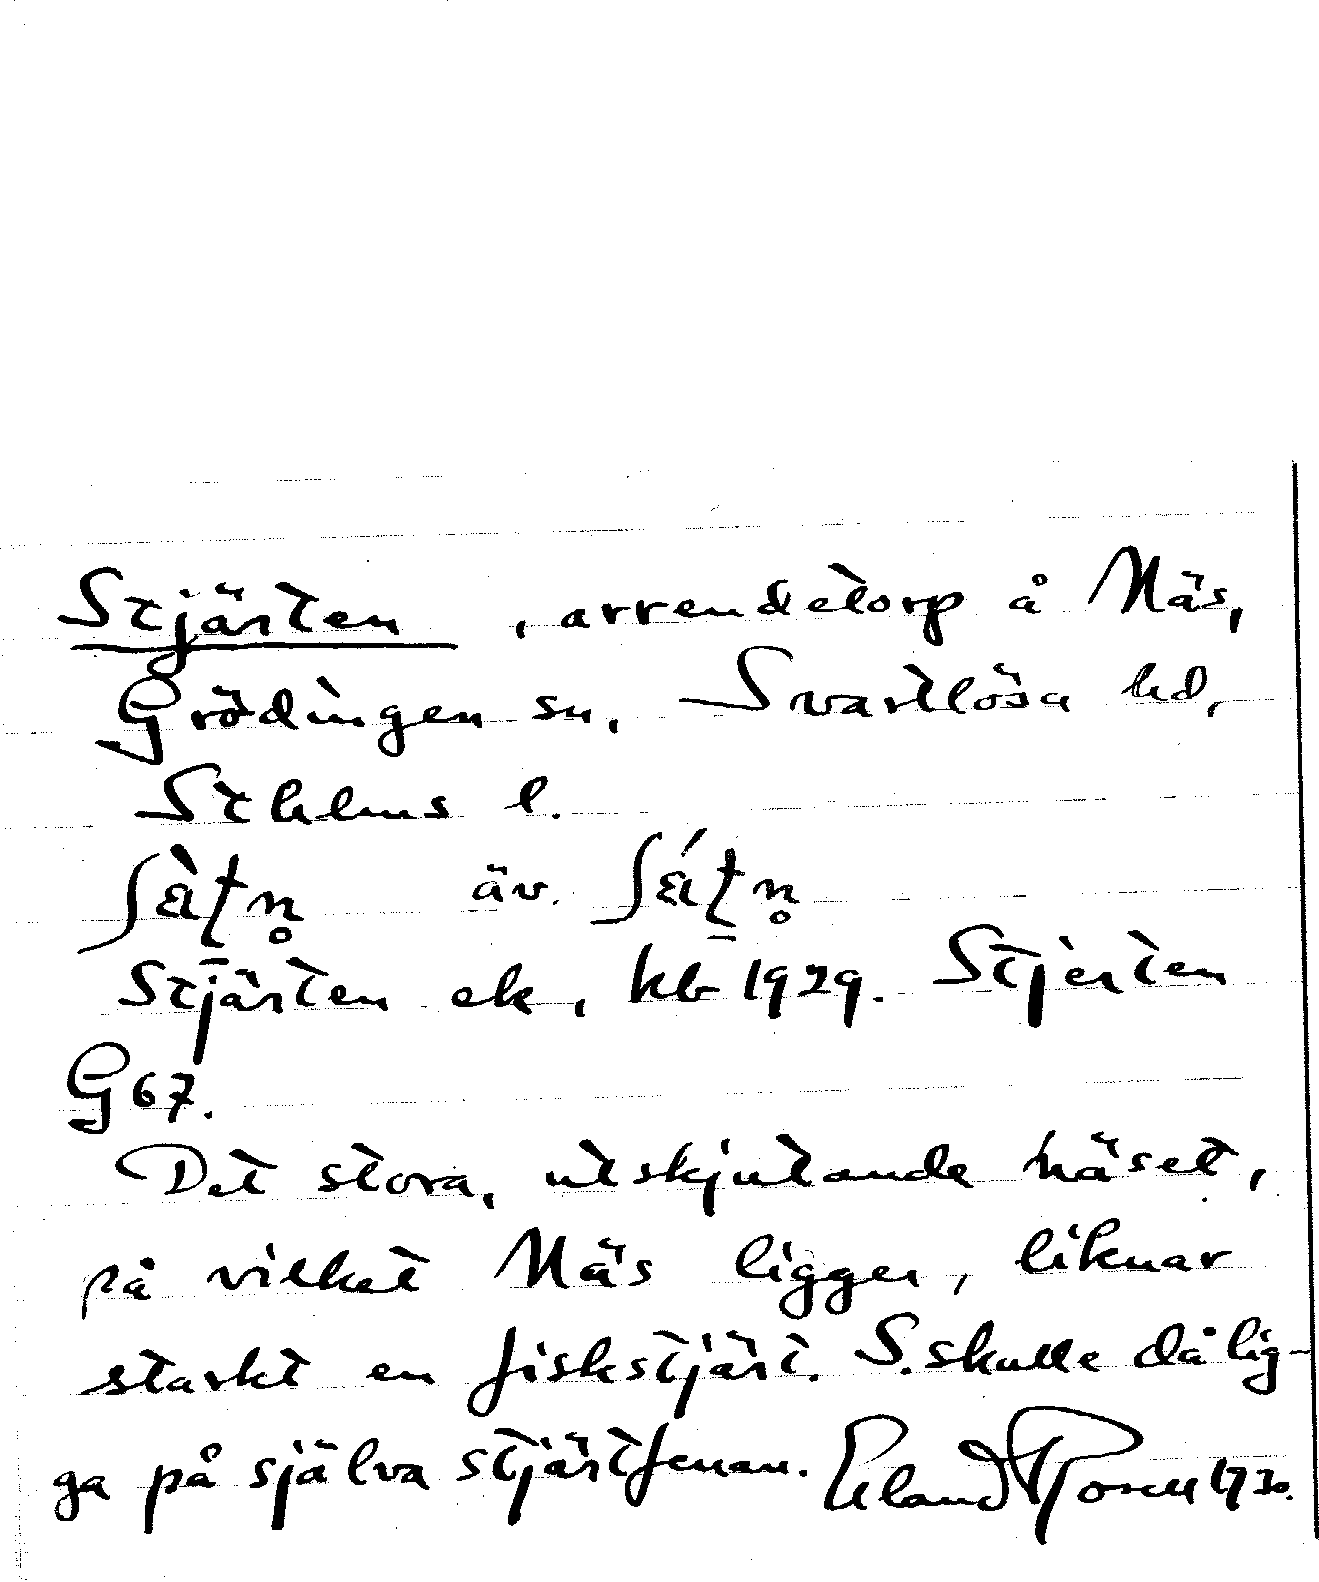 Stjärten, arrendetorp å Näs,
Grödingen sn, Svartlösa hd,
Sthlms l.
äv.
Stjärten ek, kb 1929. Stjerten
G 67.
Det stora, utskjutande näset,
på vilket Näs ligger, liknar
starkt en fiskstjärt. S. skulle då lig-
ga på själva stjärtfenan. Erland Rosell 1930.